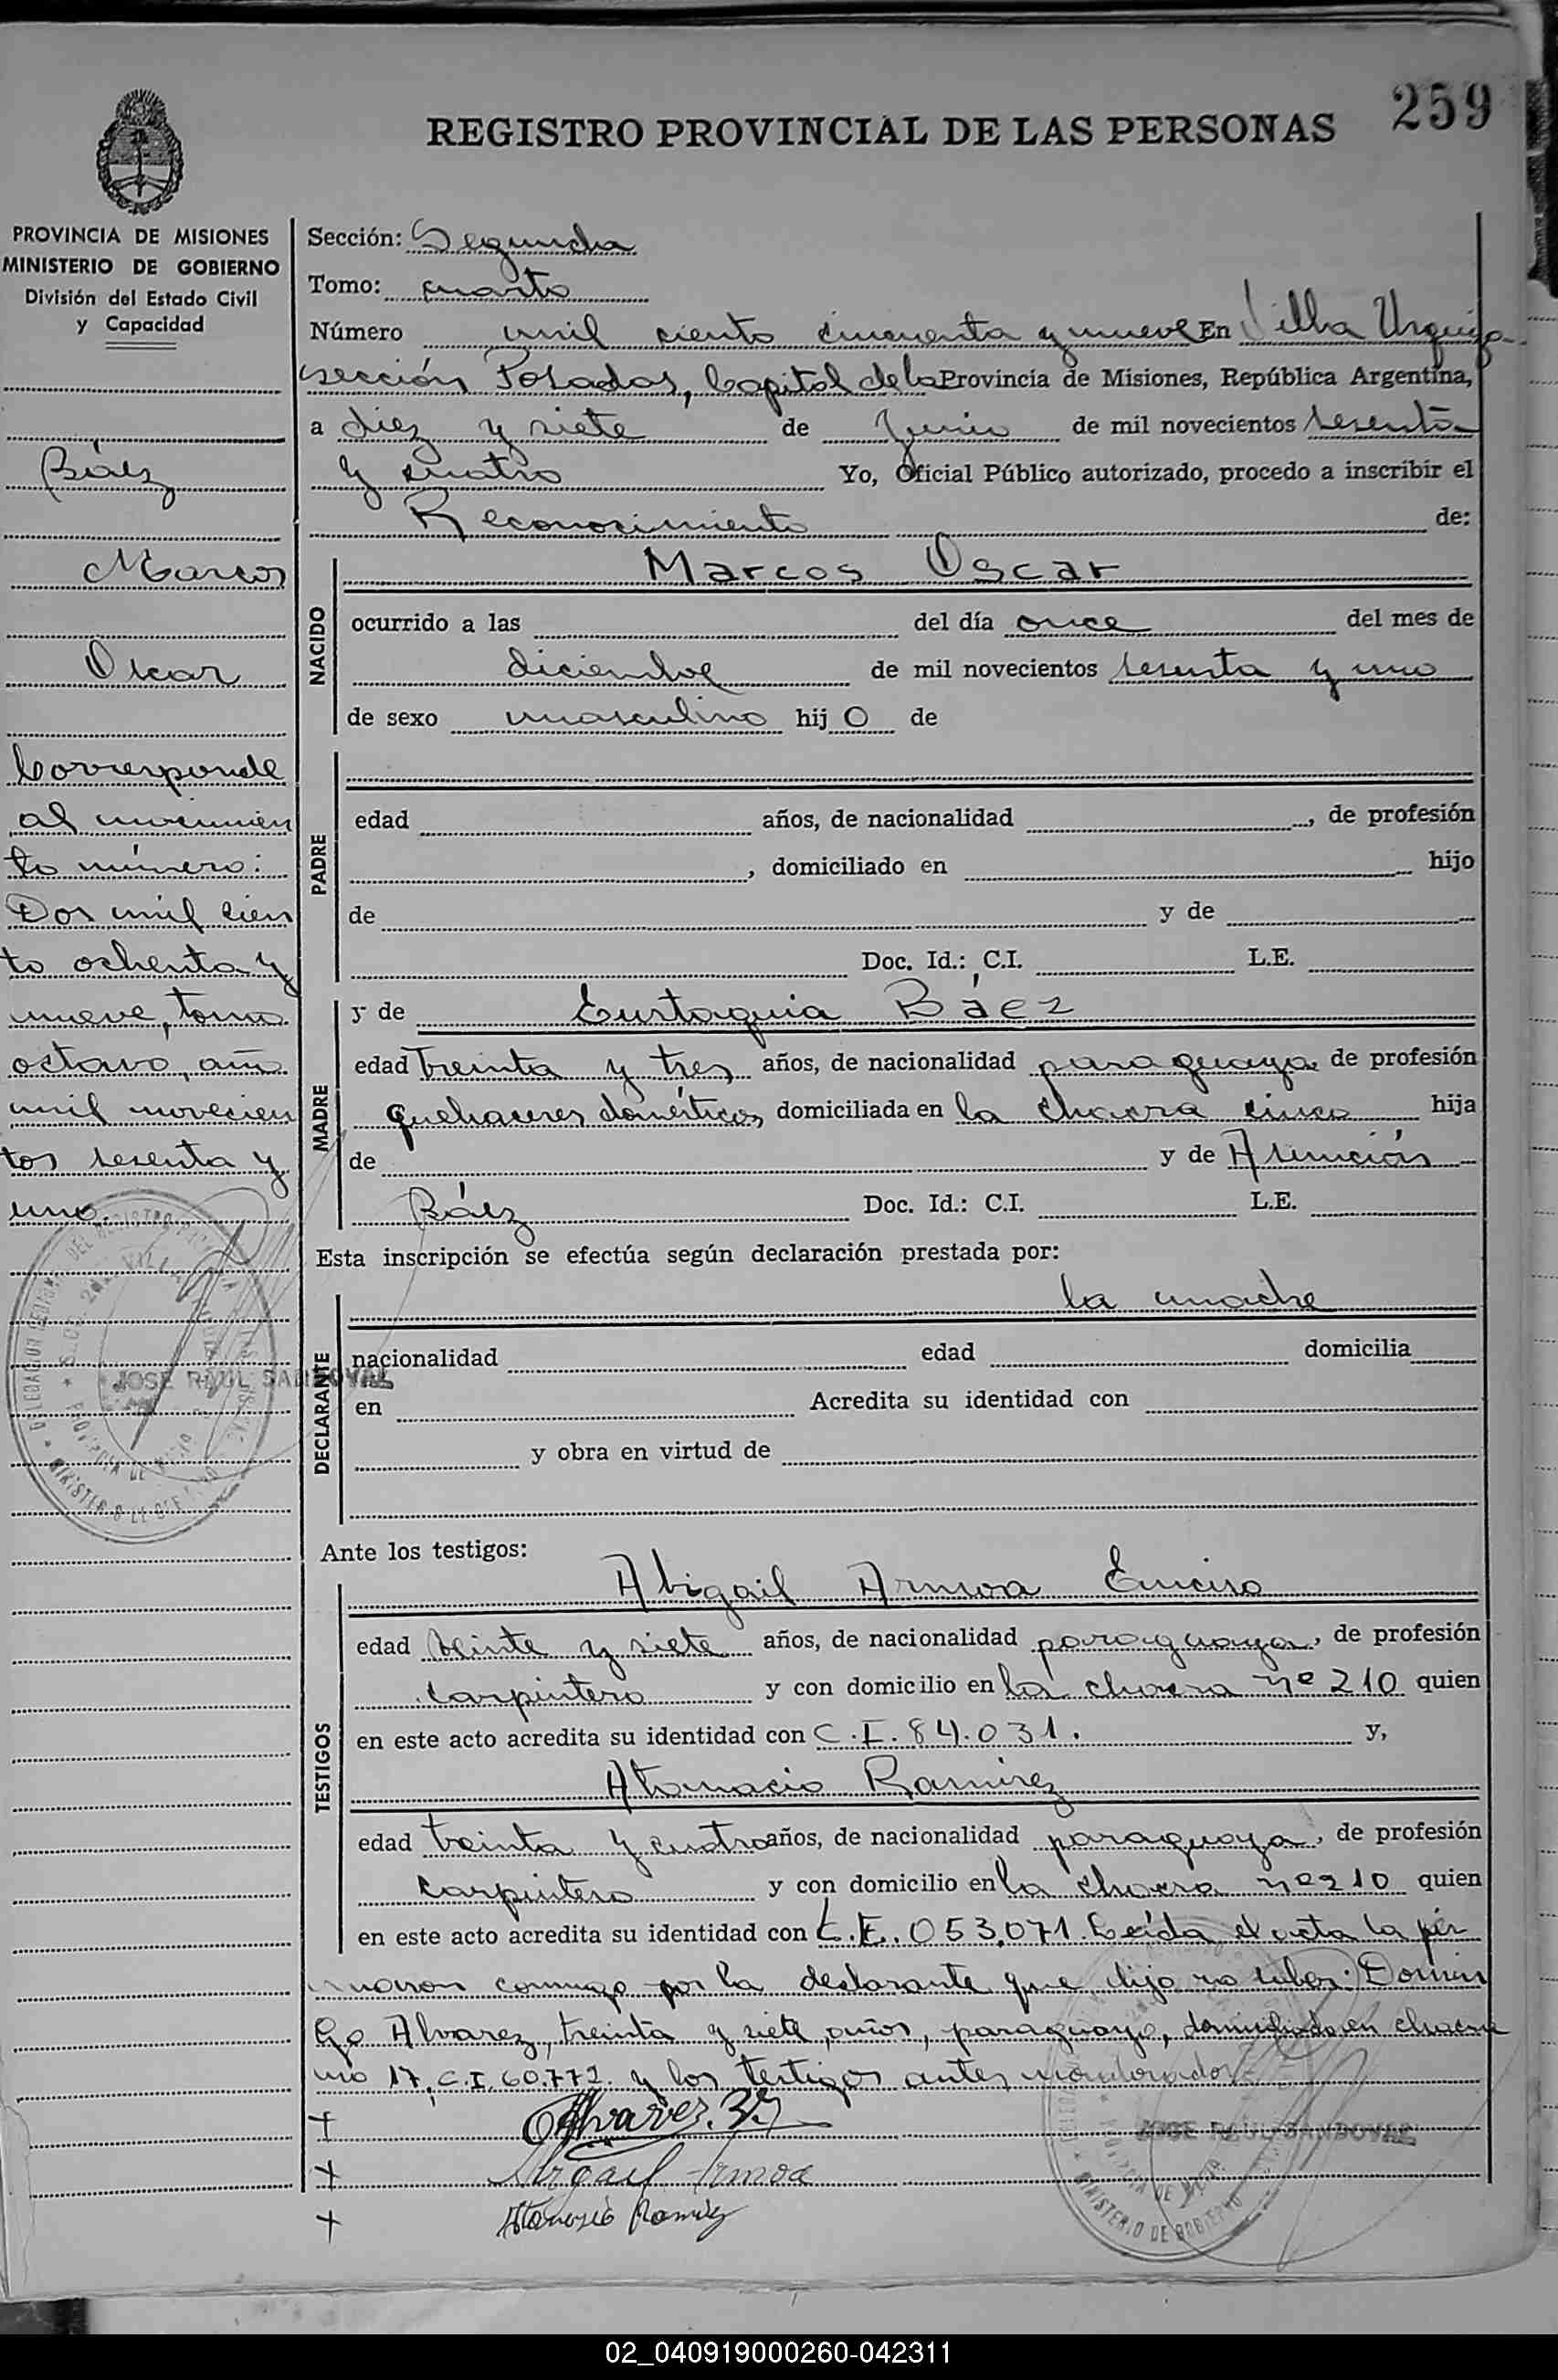 259
REGISTRO PROVINCIAL DE LAS PERSONAS
PROVINCIA DE MISIONES
MINISTERIO DE GOBIERNO
División del Estado Civil
y Capacidad
Báez
Marcos
Oscar
Corresponde
al nacimien
to número:
Dos mil cien
to ochenta y
nueve, tomo
octavo, año
mil novecien
tos sesenta y
uno.
JOSE RAUL SANDOVAL
Sección: Segunda
Tomo: cuarto
Número mil ciento cincuenta y nueve En Villa Urquiza
sección Posadas, Capital de la Provincia de Misiones, República Argentina,
a diez y siete de Junio de mil novecientos sesenta
y cuatro Yo, Oficial Público autorizado, procedo a inscribir el
Reconocimiento de:
NACIDO
Marcos Oscar
ocurrido a las del día once del mes de
diciembre de mil novecientos sesenta y uno
de sexo masculino hij o de
PADRE
edad años, de nacionalidad , de profesión
, domiciliado en hijo
de y de
Doc. Id.: C.I. L.E.
MADRE
y de Eustaquia Báez
edad treinta y tres años, de nacionalidad paraguaya de profesión
quehaceres domésticos, domiciliada en la chacra cinco hija
de y de Asunción
Báez Doc. Id.: C.I. L.E.
Esta inscripción se efectúa según declaración prestada por:
DECLARANTE
la madre
nacionalidad edad domicilia
en Acredita su identidad con
y obra en virtud de
Ante los testigos:
TESTIGOS
Abigail Armoa Enciso
edad veinte y siete años, de nacionalidad paraguaya, de profesión
carpintero y con domicilio en la chacra nº 210 quien
en este acto acredita su identidad con C.I. 84.031. y,
Atanacio Ramirez
edad treinta y cuatro años, de nacionalidad paraguaya, de profesión
carpintero y con domicilio en la chacra nº 210 quien
en este acto acredita su identidad con C.E. 053.071. Leída el acta la fir
maron conmigo por la declarante que dijo no saber: Domin
go Alvarez, treinta y siete años, paraguayo, domiciliado en chacra
nº 17, C.I. 60.772. y los testigos antes nombrados
Alvarez
Abigail Armoa
Atanasio Ramirez
JOSE RAUL SANDOVAL
MINISTERIO DE GOBIERNO
02_040919000260-042311